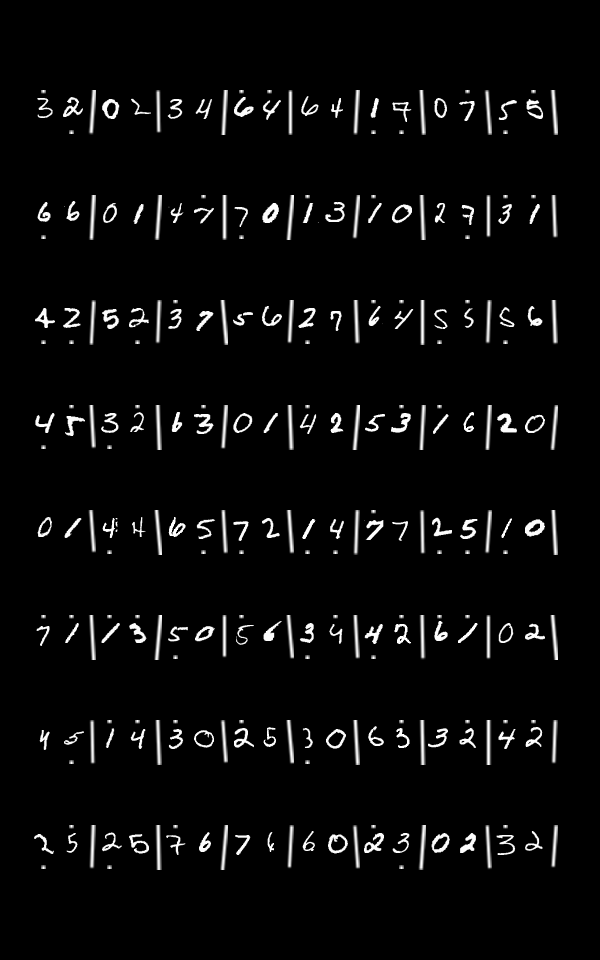 3 2 | 0 2 | 3 4 | 6 4 | 6 4 | 1 7 | 0 7 | 5 5 |
6 6 | 0 1 | 4 7 | 7 0 | 1 3 | 1 0 | 2 7 | 3 1 |
4 2 | 5 2 | 3 7 | 5 6 | 2 7 | 6 4 | 5 5 | 5 6 |
4 5 | 3 2 | 6 3 | 0 1 | 4 2 | 5 3 | 1 6 | 2 0 |
0 1 | 4 4 | 6 5 | 7 2 | 1 4 | 7 7 | 2 5 | 1 0 |
7 1 | 1 3 | 5 0 | 5 6 | 3 4 | 4 2 | 6 1 | 0 2 |
4 5 | 1 4 | 3 0 | 2 5 | 3 0 | 6 3 | 3 2 | 4 2 |
2 5 | 2 5 | 7 6 | 7 6 | 6 0 | 2 3 | 0 2 | 3 2 |